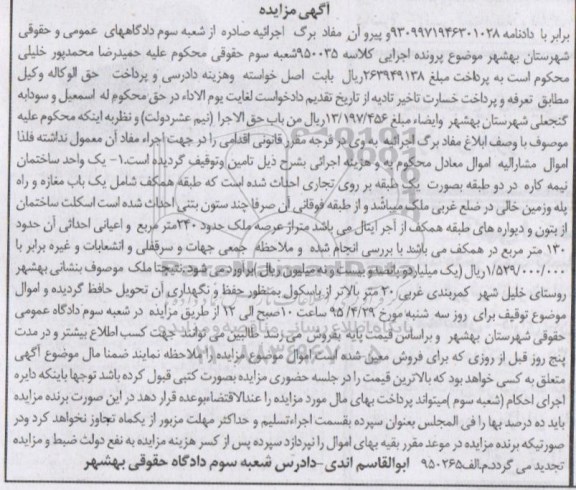 آگهی مزایده
برابر با دادنامه ۹۳۰۹۹۷۱۹۴۶۳۰۱۰۲۸ و پیرو آن مفاد برگ اجرائیه صادره از شعبه سوم دادگاههای عمومی و حقوقی
شهرستان بهشهر موضوع پرونده اجرایی کلاسه ۹۵۰۰۳۵ شعبه سوم حقوقی محکوم علیه حمیدرضا محمدپور خلیلی
محکوم است به پرداخت مبلغ ۲۶۳۹۴۹۱۳۸ ریال بابت اصل خواسته وهزینه دادرسی و پرداخت حق الوکاله وکیل
مطابق تعرفه و پرداخت خسارت تاخیر تادیه از تاریخ تقدیم دادخواست لغایت یوم الاداء در حق محکوم له اسمعیل و سودابه
گنجعلی شهرستان بهشهر وایضاء مبلغ ۱۳/۱۹۷/۴۵۶ ریال من باب حق الاجرا (نیم عشردولت) و نظربه اینکه محکوم علیه
موصوف با وصف ابلاغ مفاد برگ اجرائیه به وی در فرجه مقرر قانونی اقدامی را در جهت اجراء مفاد آن معمول نداشته فلذا
اموال مشارالیه اموال معادل محکوم به و هزینه اجرائی بشرح ذیل تامین وتوقیف گردیده است.۱- یک واحد ساختمان
نیمه کاره در دو طبقه بصورت یک طبقه بر روی تجاری احداث شده است که طبقه همکف شامل یک باب مغازه و راه
پله وزمین خالی در ضلع غربی ملک میباشد و از طبقه فوقانی آن صرفا چند ستون بتنی احداث شده است اسکلت ساختمان
از بتون و دیواره های طبقه همکف از آجر ایتال می باشد متراژ عرصه ملک حدود ۲۴۰ متر مربع و اعیانی احداثی آن حدود
۱۳۰ متر مربع در همکف می باشد با بررسی انجام شده و ملاحظه جمیع جهات و سرقفلی و انشعابات و غیره برابر با
۱/۵۲۹/۰۰۰/۰۰۰ ریال (یک میلیاردو پانصدوبیست ونه میلیون ریال) براوردمی شود. نتیجتا ملک موصوف بنشانی بهشهر
روستای خلیل شهر کمربندی غربی ۲۰ متر بالاتر از باسکول بمنظور حفظ و نگهداری آن تحویل حافظ گردیده و اموال
موضوع توقیف برای روز سه شنبه مورخ ۹۵/۴/۲۹ ساعت ۱۰ صبح الی ۱۲ از طریق مزایده در شعبه سوم دادگاه عمومی
حقوقی شهرستان بهشهر و براساس قیمت پایه بفروش می رسد طالبین می توانند جهت کسب اطلاع بیشتر و در مدت
پنج روز قبل از روزی که برای فروش معین شده است اموال موضوع مزایده را ملاحظه نمایند ضمنا مال موضوع آگهی
متعلق به کسی خواهد بود که بالاترین قیمت را در جلسه حضوری مزایده بصورت کتبی قبول کرده باشد توجها باینکه دایره
اجرای احکام (شعبه سوم) میتواند پرداخت بهای مال مورد مزایده را عندالاقتضاءبوعده قرار دهد در این صورت برنده مزایده
باید ده درصد بها را فی المجلس بعنوان سپرده بقسمت اجراءتسلیم و حداکثر مهلت مزبور از یکماه تجاوز نخواهد کرد ودر
صورتیکه برنده مزایده در موعد مقرر بقیه بهای اموال را نپردازد سپرده پس از کسر هزینه مزایده به نفع دولت ضبط و مزایده
تجدید می گردد.م.الف ۹۵۰۲۶۵ ابوالقاسم اندی-دادرس شعبه سوم دادگاه حقوقی بهشهر